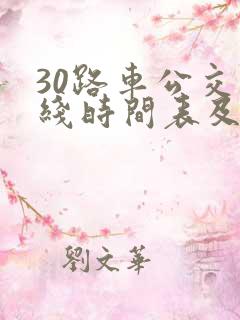 30路車公交
綫時間表及
劉文華